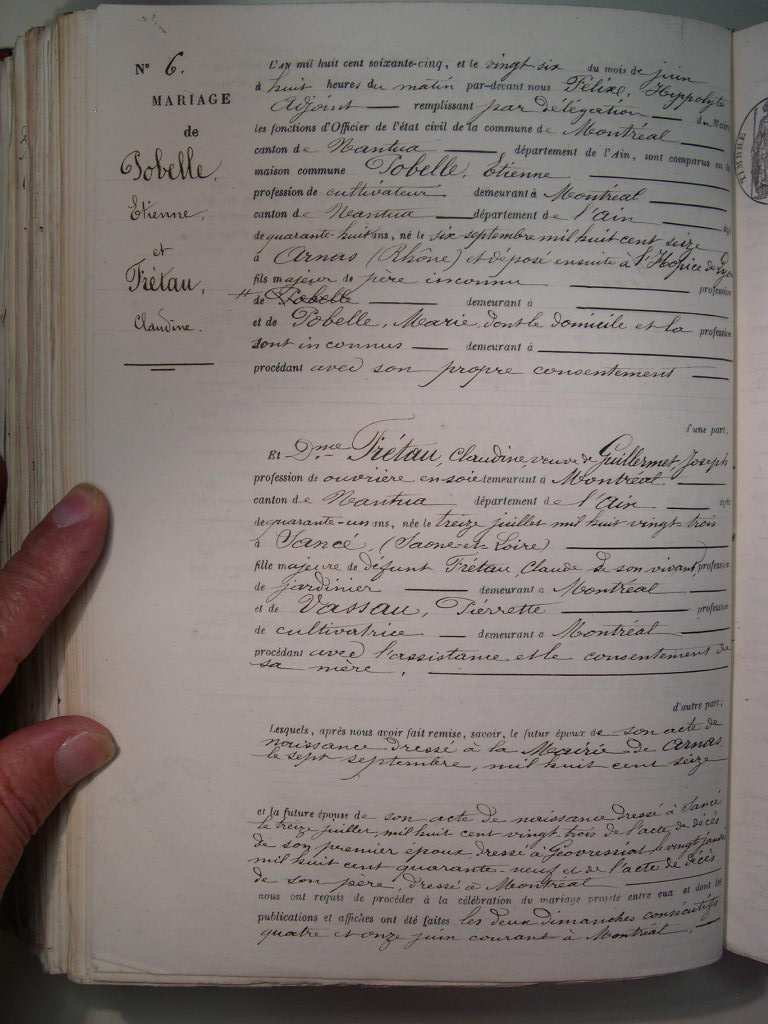 N° 6.
MARIAGE
de
Pobelle,
Etienne,
et
Frétau,
Claudine.
L'AN mil huit cent soixante-cinq, et le vingt six du mois de juin
à huit heures du matin par-devant nous Félixe, Hyppolyte
Adjoint — remplissant par délégation — du Maire
les fonctions d'Officier de l'état civil de la commune de Montréal —
canton de Nantua — département de l'Ain, sont comparus en la
maison commune Pobelle, Etienne —
profession de cultivateur demeurant à Montréal —
canton de Nantua — département de l'Ain — âgé
de quarante-huit ans, né le six septembre mil huit cent seize
à Arnas (Rhône) et déposé ensuite à l'Hospice de Lyon
fils majeur de père inconnu — profession
de Pobelle — demeurant à —
et de Pobelle, Marie, dont le domicile et la profession
sont inconnus — demeurant à —
procédant avec son propre consentement —
d'une part,
Et Dme Frétau, Claudine, veuve de Guillermet, Joseph
profession de ouvrière en soie demeurant à Montréal —
canton de Nantua département de l'Ain — âgée
de quarante-un ans, née le treize juillet mil huit vingt-trois
à Sancé (Saone-et-Loire) —
fille majeure de défunt Frétau, Claude de son vivant, profession
de jardinier — demeurant à Montréal —
et de Vassau, Pierrette — profession
de cultivatrice — demeurant à Montréal —
procédant avec l'assistance et le consentement de
sa mère, —
d'autre part,
Lesquels, après nous avoir fait remise, savoir, le futur époux de son acte de
naissance dressé à la Mairie de Arnas
le sept septembre, mil huit cent seize
et la future épouse de son acte de naissance dressé à Sancé
le treize juillet, mil huit cent vingt trois de l'acte de décés
de son premier époux, dressé à Géovressiat le vingt janvier
mil huit cent quarante-neuf et de l'acte de décés
de son père, dressé à Montréal —
nous ont requis de procéder à la célébration du mariage projeté entre eux et dont les
publications et affiches ont été faites les deux dimanches consécutifs
quatre et onze juin courant à Montréal. —
TIMBRE